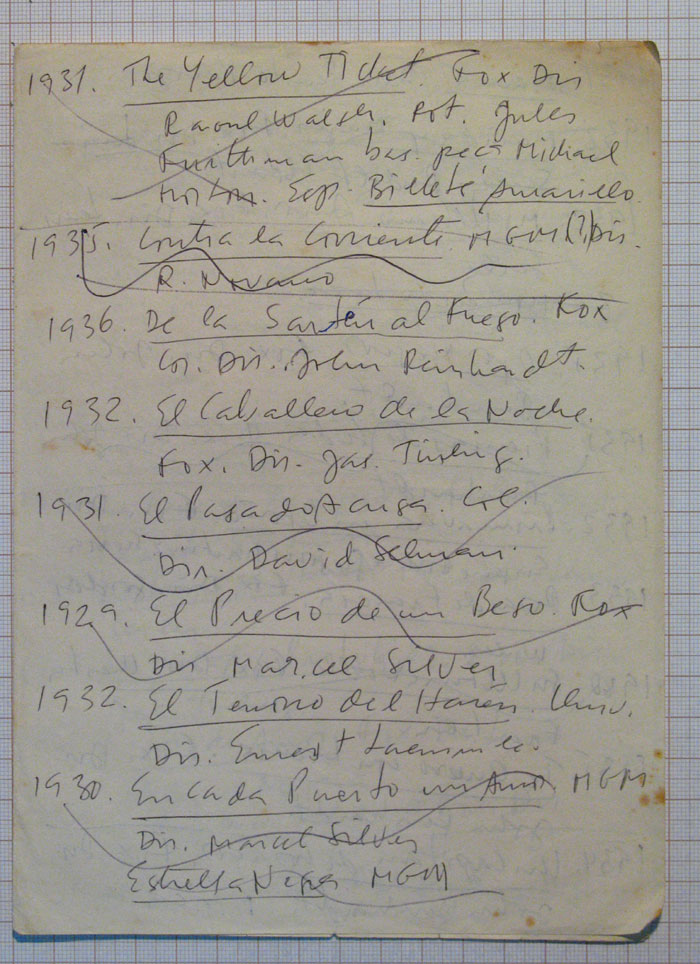 1931. The Yellow Ticket. Fox Dir
Raoul Walsh. Rot. Jules
Furthman bas. peça Michael
Morton. Esp. Billete Amarillo.
1935. Contra la Corriente. MGM(?) Dir.
R. Novarro
1936. De la Sartén al Fuego. Fox
Dir. John Reinhardt.
1932. El Caballero de la Noche.
Fox. Dir. Jas. Tinling.
1931. El Pasado Acusa. Col.
Dir. David Selman.
1929. El Precio de un Beso. Fox
Dir Marcel Silver
1932. El Tenorio del Harén. Univ.
Dir. Ernest Laemmle.
1930. En Cada Puerto un Amor. MGM
Dir. Marcel Silver
Estrella Negra MGM